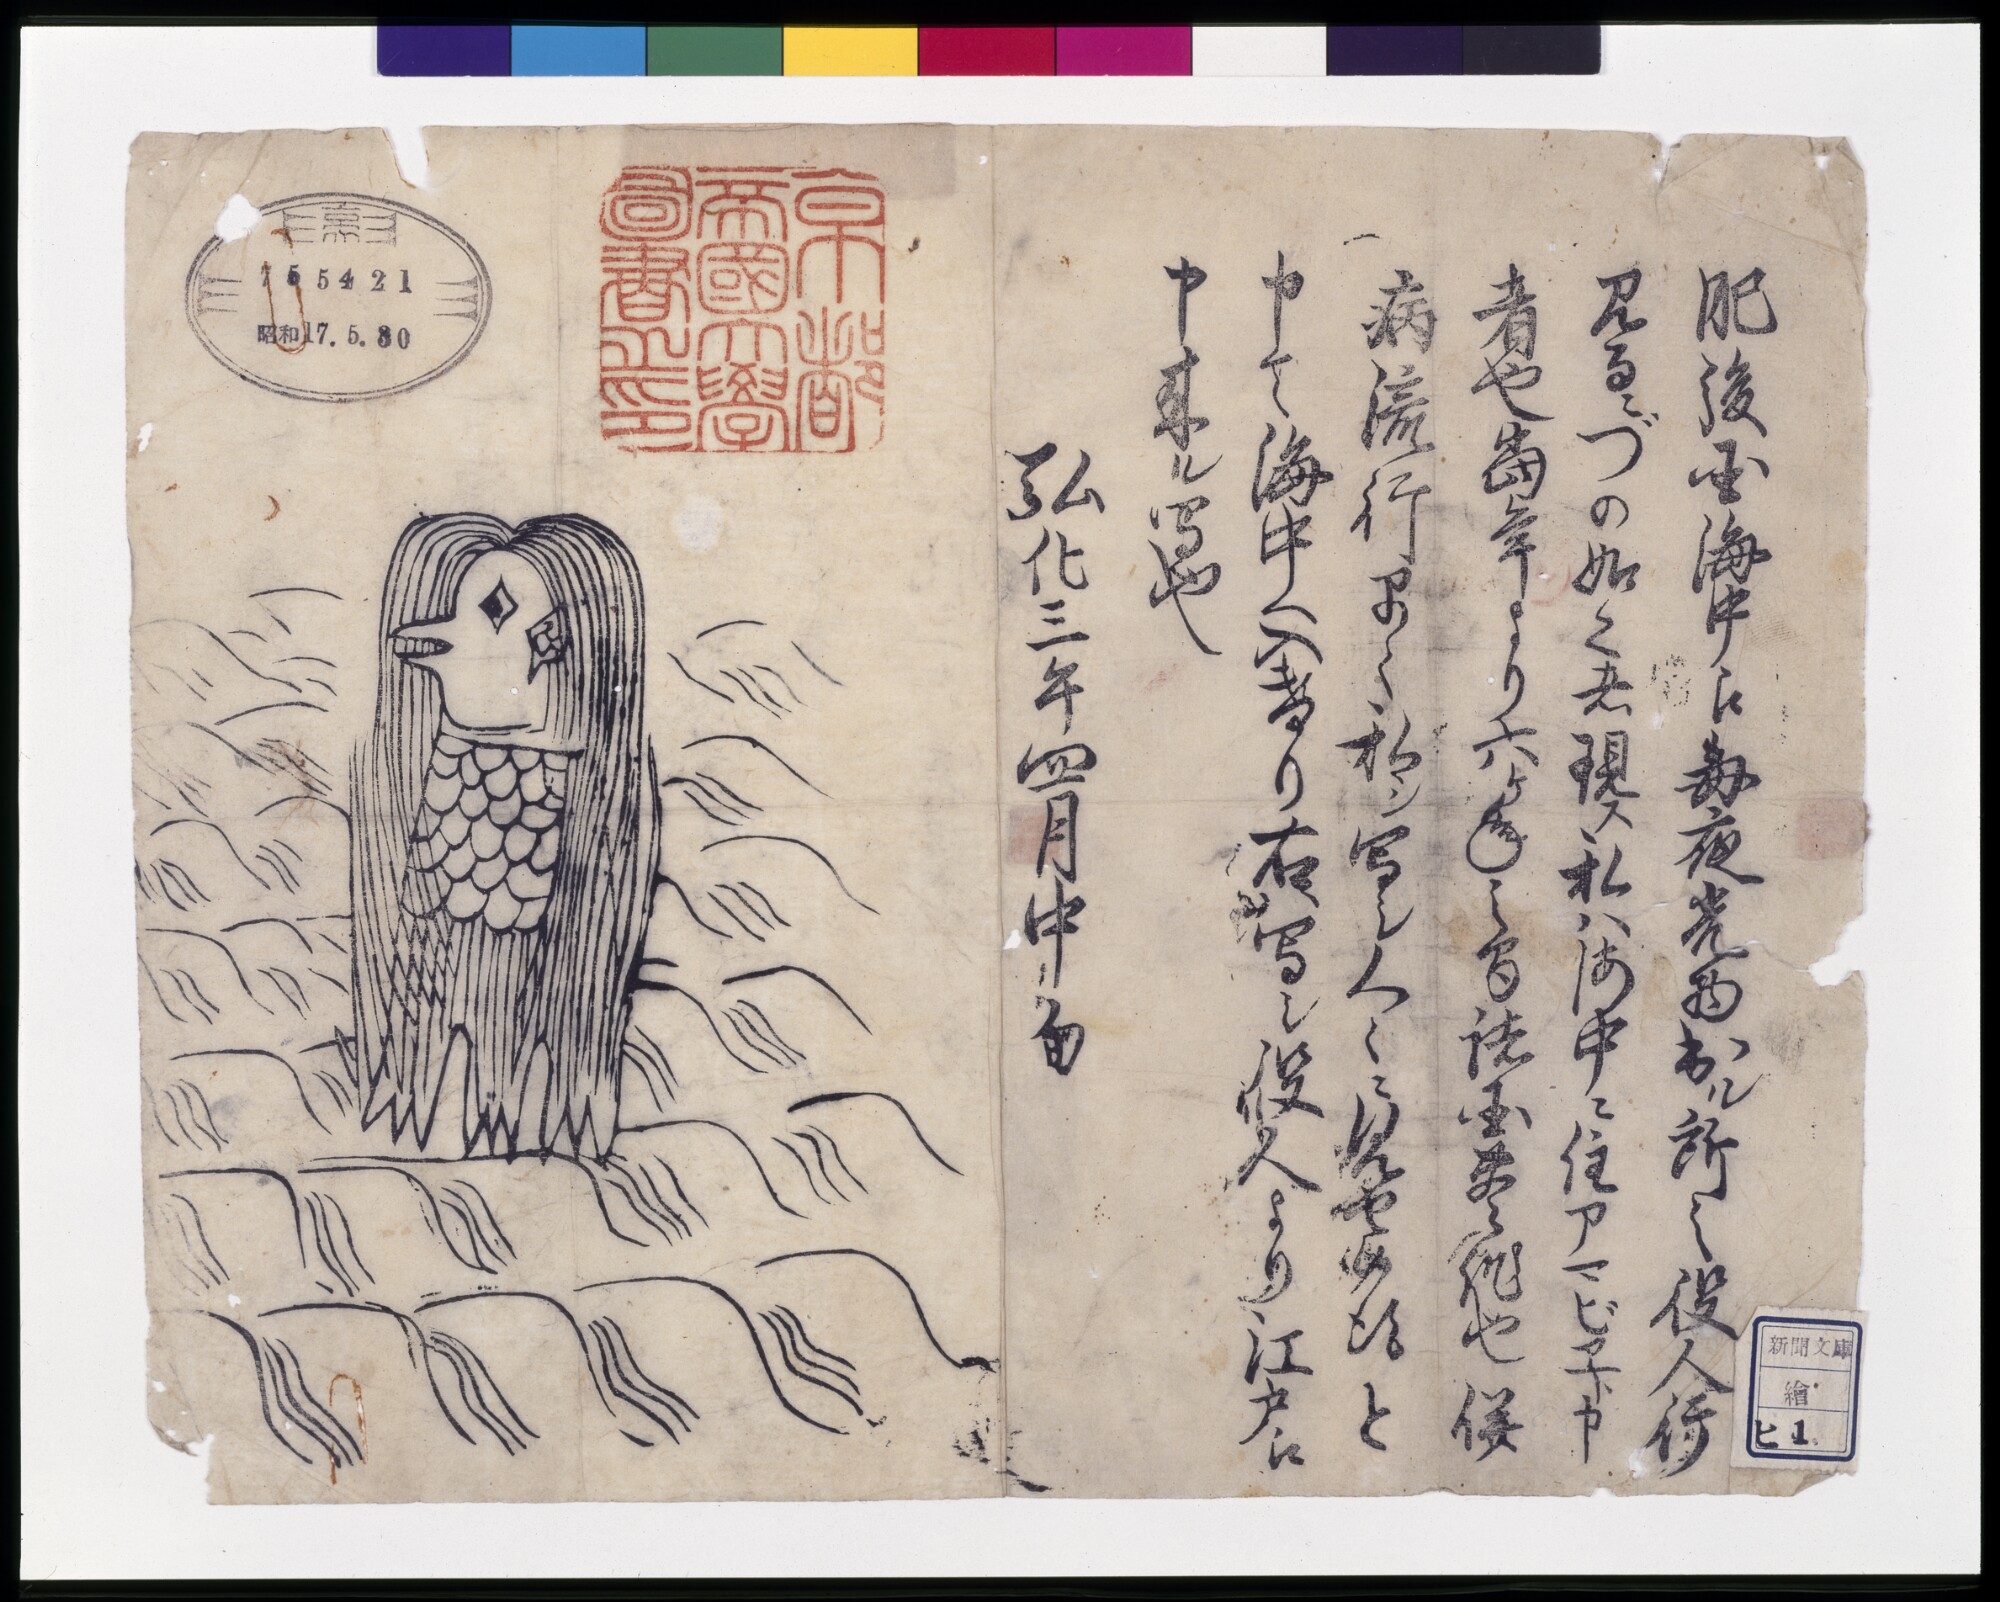 肥後国海中江毎夜光物出ル所之役人行
見るニづの如く者現ス私ハ海中ニ住アマビヱト申
者也当年より六ヶ年之間諸国豊作也併
病流行早々私シ写シ人々ニ見セ候得と
申て海中へ入けり右写シ役人より江戸江
申来ル写也
弘化三年四月中旬
京都
帝國大學
圖書之印
755421
昭和17.5.30
新聞文庫
繪
ヒ 1